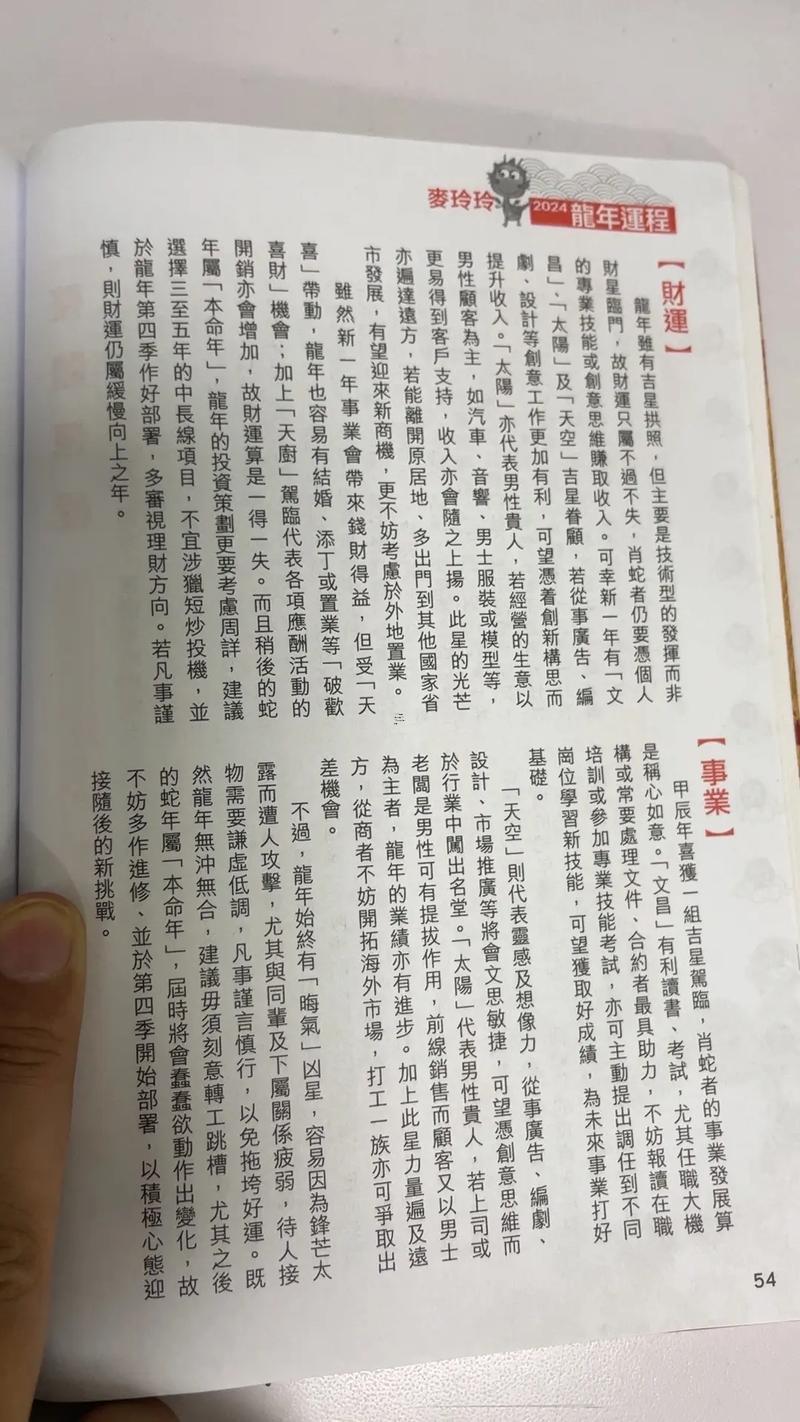 麥玲玲
2024 龍年運程
【財運】
龍年雖有吉星拱照，但主要是技術型的發揮而非
財星臨門，故財運只屬不過不失，肖蛇者仍要憑個人
的專業技能或創意思維賺取收入。可幸新一年有「文
昌」、「太陽」及「天空」吉星眷顧，若從事廣告、編
劇、設計等創意工作更加有利，可望憑着創新構思而
提升收入。「太陽」亦代表男性貴人，若經營的生意以
男性顧客為主，如汽車、音響、男士服裝或模型等，
更易得到客戶支持，收入亦會隨之上揚。此星的光芒
亦遍達遠方，若能離開原居地、多出門到其他國家省
市發展，有望迎來新商機，更不妨考慮於外地置業。
雖然新一年事業會帶來錢財得益，但受「天
喜」帶動，龍年也容易有結婚、添丁或置業等「破歡
喜財」機會；加上「天廚」駕臨代表各項應酬活動的
開銷亦會增加，故財運算是一得一失。而且稍後的蛇
年屬「本命年」，龍年的投資策劃更要考慮周詳，建議
選擇三至五年的中長線項目，不宜涉獵短炒投機，並
於龍年第四季作好部署，多審視理財方向。若凡事謹
慎，則財運仍屬緩慢向上之年。
【事業】
甲辰年喜獲一組吉星駕臨，肖蛇者的事業發展算
是稱心如意。「文昌」有利讀書、考試，尤其任職大機
構或常要處理文件、合約者最具助力，不妨報讀在職
培訓或參加專業技能考試，亦可主動提出調任到不同
崗位學習新技能，可望獲取好成績，為未來事業打好
基礎。
「天空」則代表靈感及想像力，從事廣告、編劇、
設計、市場推廣等將會文思敏捷，可望憑創意思維而
於行業中闖出名堂。「太陽」代表男性貴人，若上司或
老闆是男性可有提拔作用，前線銷售而顧客又以男士
為主者，龍年的業績亦有進步。加上此星力量遍及遠
方，從商者不妨開拓海外市場，打工一族亦可爭取出
差機會。
不過，龍年始終有「晦氣」凶星，容易因為鋒芒太
露而遭人攻擊，尤其與同輩及下屬關係疲弱，待人接
物需要謙虛低調，凡事謹言慎行，以免拖垮好運。既
然龍年無沖無合，建議毋須刻意轉工跳槽，尤其之後
的蛇年屬「本命年」，屆時將會蠢蠢欲動作出變化，故
不妨多作進修、並於第四季開始部署，以積極心態迎
接隨後的新挑戰。
54